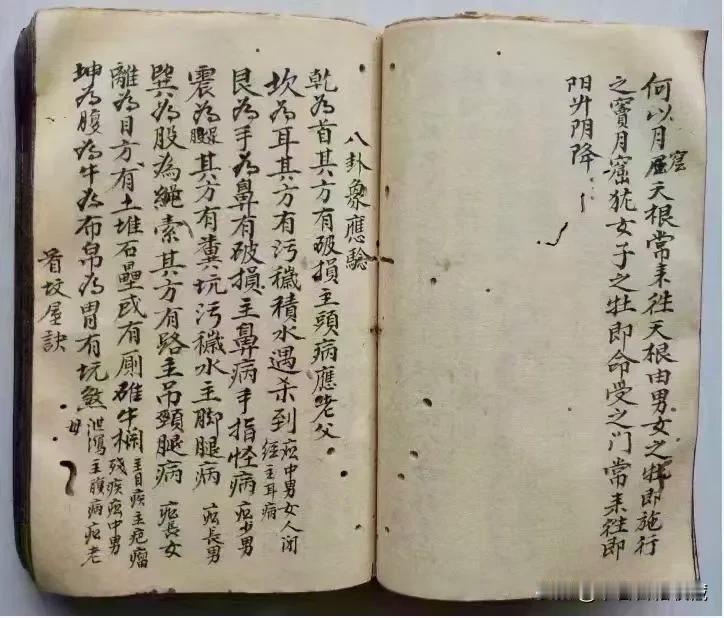 何以月屈窟天根常耒往天根由男女之牡即施行
之寳月窟犹女子之牡即命受之门常耒往即
阳升阴降
八卦象應驗
乾為首其方有破損主頭病應老父
坎為耳其方有污穢積水遇杀到应中男女人闭经主耳病
艮為手為鼻有破損主鼻病手指怪病应少男
震為腿其方有糞坑污穢水主脚腿病应長男
巽為股為繩索其方有路主吊頸腿病应長女
離為目方有土堆石壘或有厕碓牛栏主目疾主疤瘤残疾应中男
坤為腹為牛為布帛為胃有坑煞泄瀉主腹病应老母
看坟屋訣